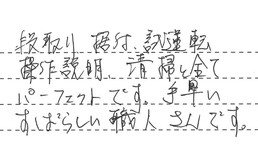 段取り、据付、試運転
操作説明、清掃と全て
パーフェクトです。手早い
すばらしい職人さんです。